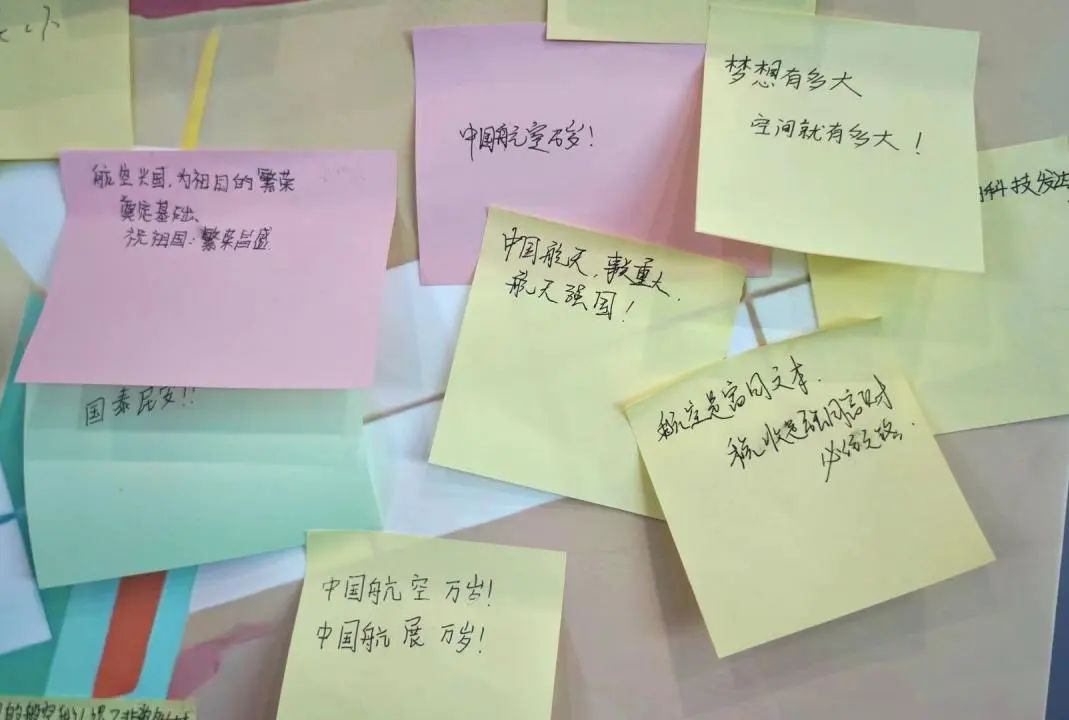 中国航空万岁!
梦想有多大
空间就有多大!
科技发达
航空兴国,为祖国的繁荣
奠定基础、
祝祖国:繁荣昌盛
中国航天,事重大.
航天强国!
国泰民安!!
航空是富国文本.
税收是强国富财
必须之路.
中国航空万岁!
中国航展万岁!